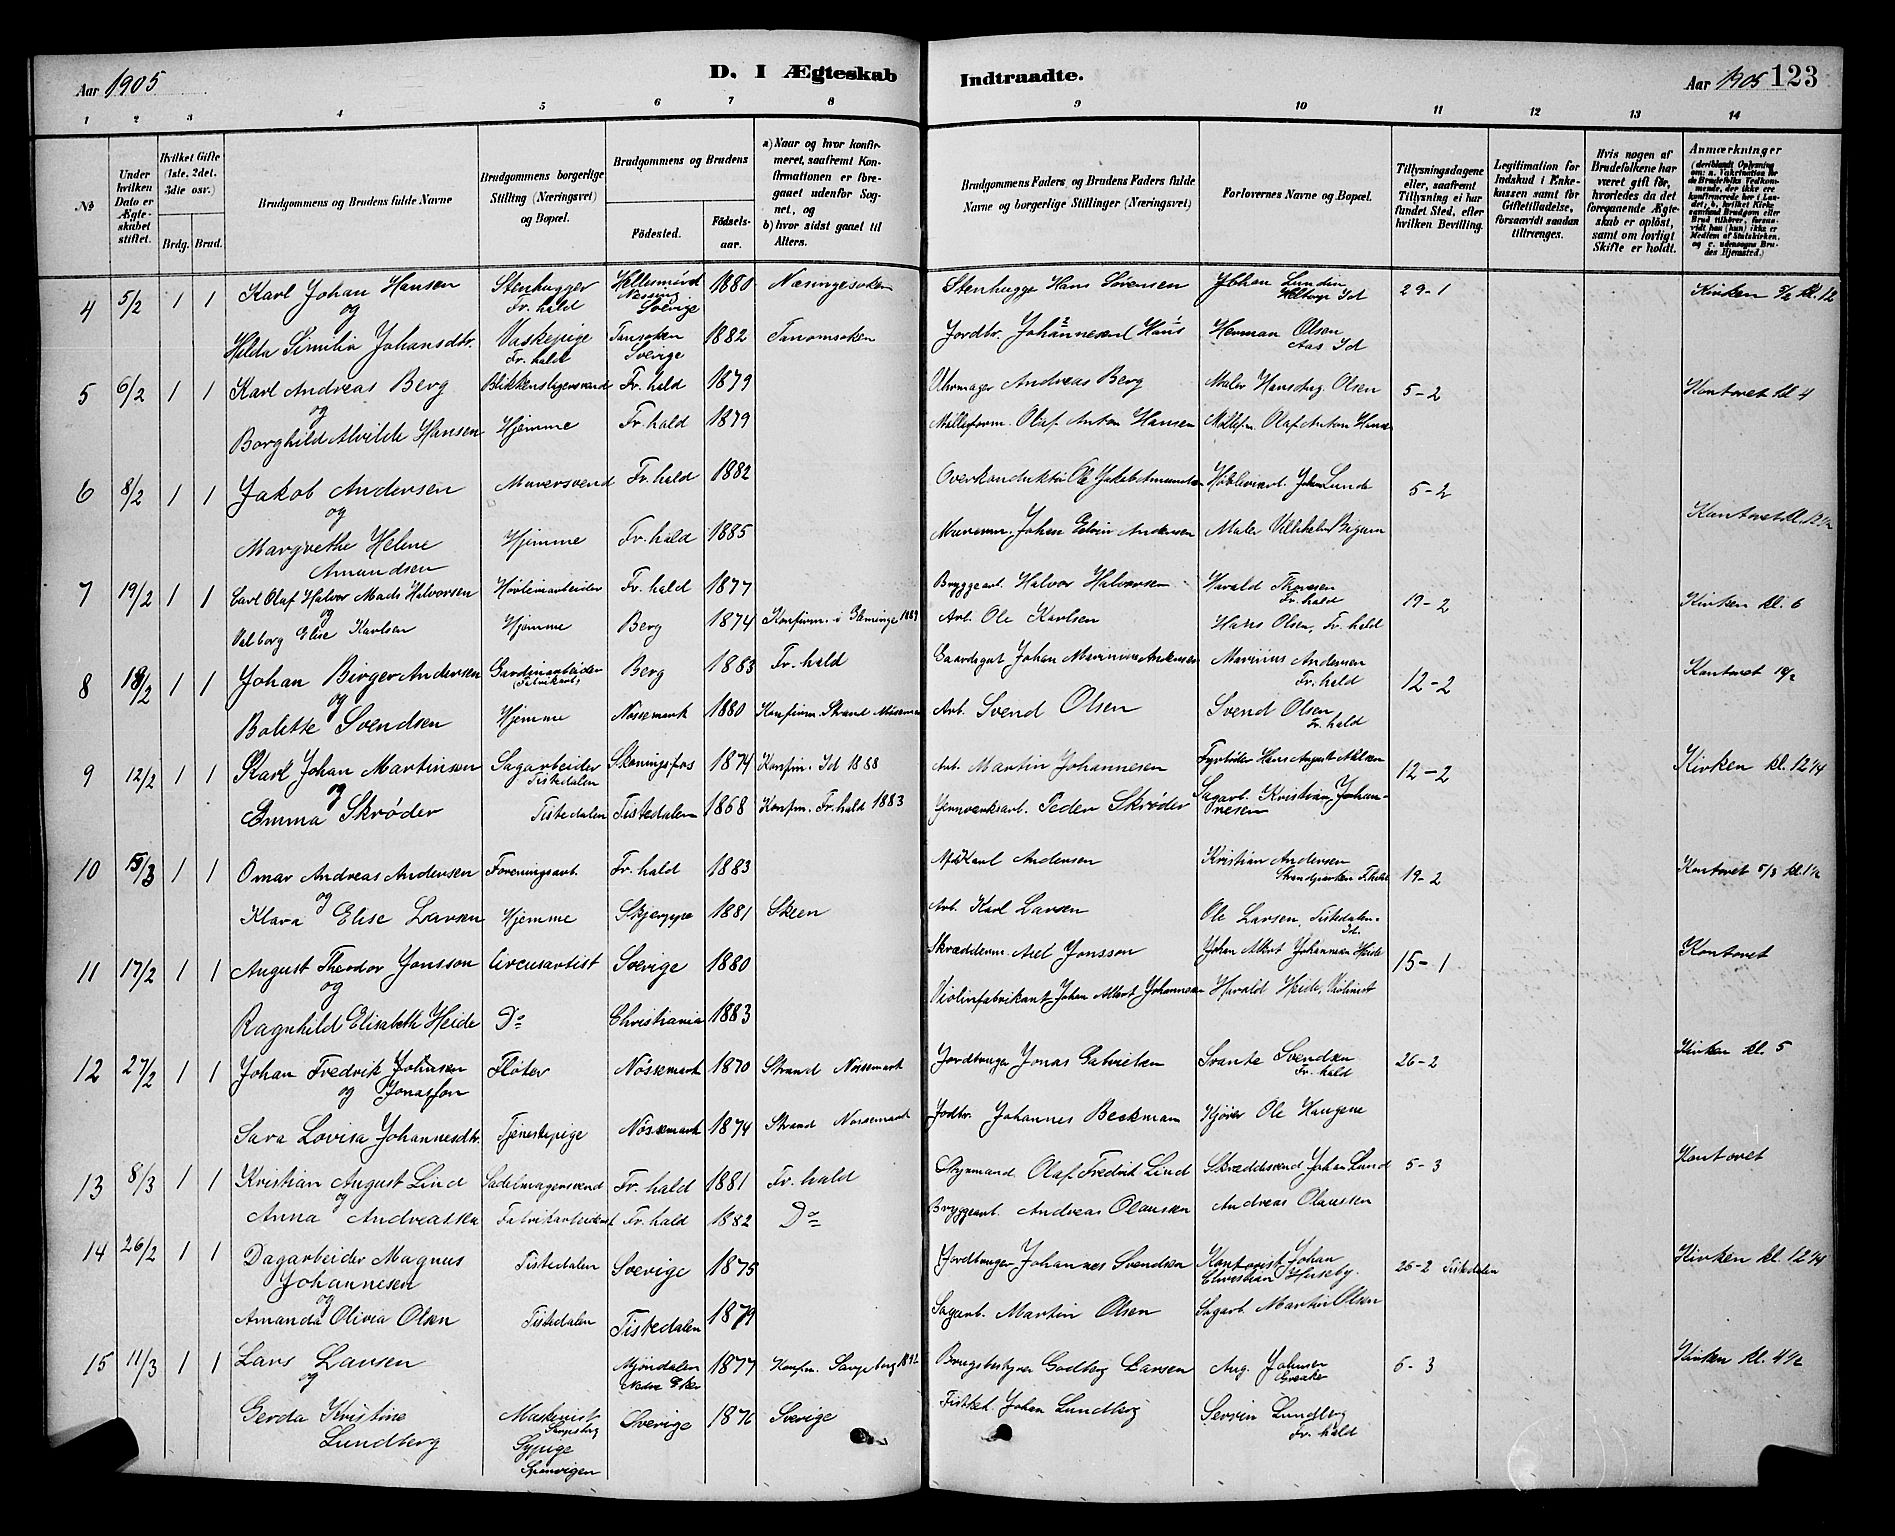 Aar 1905
D. I Ægteskab Indtraadte.
Aar 1905 123
1 2 3 4 5 6 7 8 9 10 11 12 13 14
№
Under hvilken Dato er Ægteskabet stiftet.
Hvilket Gifte (1ste, 2det. 3die osv.)
Brdg. Brud.
Brudgommens og Brudens fulde Navne
Brudgommens borgerlige Stilling (Næringsvei) og Bopæl.
Brudgommens og Brudens
Fødested. Fødselsaar.
a) Naar og hvor konfirmeret, saafremt Konfirmationen er foregaaet udenfor Sognet, og b) hvor sidst gaaet til Alters.
Brudgommens Faders og Brudens Faders fulde Navne og borgerlige Stillinger (Næringsvei)
Forlovernes Navne og Bopæl.
Tillysningsdagene eller, saafremt Tillysning ei har fundet Sted, efter hvilken Bevilling.
Legitimation for Indskud i Enkekassen samt for Giftetilladelse, forsaavidt saadan tiltrænges.
Hvis nogen af Brudefolkene har været gift før, hvorledes da det foregaaende Ægteskab er opløst, samt om lovligt Skifte er holdt.
Anmærkninger
4 5/2 1 1 Karl Johan Hansen Stenhugger Fr.hald Sverige 1880 Næsingesoken Stenhugge Hans Sørensen Johan Lundin Id 29-1 Kirken kl. 12
og
Hilda Similia Johansdtr. Vaskepige Fr.hald Tansoken Sverige 1882 Tanomsoken Jordbr. Johannesen Hans Herman Olsen Aas Id
5 6/2 1 1 Karl Andreas Berg Blikkenslagersvend Fr.hald 1879 Uhrmager Andreas Berg Maler Hans Aug. Olsen 5-2 Kontoret kl 4
og
Borghild Alvilde Hansen Hjemme Fr.hald 1879 Mølleform. Olaf Anton Hansen Møllef. Olaf Anton Hansen
6 8/2 1 1 Jakob Andersen Murersvend Fr.hald 1882 Overkonduktør Ole Jakob Amundsen Høvleriarb. Johan Lunde 5-2 Kontoret kl. 12 1/2
og
Margrethe Helene Amundsen Hjemme Fr.hald 1885 Johan Edvin Andersen Maler Vilhelm
7 19/2 1 1 Carl Olaf Halvor Mads Halvorsen Høvleriarbeider Fr.hald 1877 Bryggearb. Halvor Halvorsen Harald Thoresen Fr.hald 19-2 Kirken kl. 6
og
Valborg Elise Karlsen Hjemme Berg 1874 Konfirm. i Glemminge 1889 Arb. Ole Karlsen Hans Olsen, Fr.hald
8 18/2 1 1 Johan Birger Andersen Gardinarbeider (Fabrikarb.) Berg 1883 Fr.hald Gaardsgut Johan Marinius Andersen Marinius Andersen Fr.hald 12-2 Kontoret 18/2
og
Bolette Svendsen Hjemme Nössemark 1880 Konfirm. Strand Nössemark Arb. Svend Olsen Svend Olsen Fr.hald
9 12/2 1 1 Karl Johan Martinsen Sagarbeider Tistedalen Skoningsfos 1874 Konfir. Id 1888 Arb. Martin Johannesen Fyrbøder Hans August Nilsen 12-2 Kirken kl. 12 1/4
og
Emma Skrøder Tistedalen Tistedalen 1868 Konfir. Fr.hald 1883 Jernverksarb. Peder Skrøder Sagarb. Kristian Johannesen
10 1 1 Omar Andreas Andersen Foreningsarb. Fr.hald 1883 Karl Andersen Kristian Andersen 19-2 Kontoret 5/3 kl. 1 1/2
og
Klara Elise Larsen Hjemme Skjerppe 1881 Skeen Arb. Karl Larsen Ole Larsen, Tistedalen. Id.
11 17/2 1 1 August Theodor Jonsson Circusartist Sverige 1880 Skræderm. Axel Jonsson Johan Albert Johannesen Heide 15-1 Kontoret
og
Ragnhild Elisabeth Heide Do Christiania 1883 Violinfabrikant Johan Albert Johannesen Harald Heide, Violinist
12 27/2 1 1 Johan Fredrik Johnsen Fløter Nössemark 1870 Strand Nössemark Jordbruger Jonas Gabrielsen Svante Svendsen Fr.hald 26-2 Kirken kl. 5
og Jonasson
Sara Lovisa Johannesdtr. Tjenestepige Nössemark 1874 Strand Nössemark Jordbr. Johannes Beckman Kjører Ole Haugene
13 8/3 1 1 Kristian August Lind Sadelmagersvend Fr.hald 1881 Fr.hald Olaf Fredrik Lind Skræddersvend Johan Lund 5-3 Kontoret
og
Anna Andreassen Fabrikarbeiderst Fr.hald 1882 Do Bryggearb. Andreas Olaussen Andreas Olaussen
14 26/2 1 1 Dagarbeider Magnus Johannesen Tistedalen Sverige 1875 Jordbruger Johannes Svendsen Kontorist Johan Christian Huseby. 26-2 Tistedalen Kirken kl. 12 1/4
og
Amanda Olivia Olsen Tistedalen Tistedalen 1879 Sagarb. Martin Olsen Sagarb. Martin Olsen
15 11/3 1 1 Lars Larsen Maskinist Sarpsborg Mjøndalen Nedre Eker 1877 Konfir. Sarpsborg 1892 Brugsbestyrer Godtberg Larsen Aug. Johnsen 5-3 Kirken kl. 4 1/2
og
Gerda Kristine Lundberg Sypige Sponvigen Sverige 1876 Sverige Johan Lundberg Servin Lundberg Fr.hald